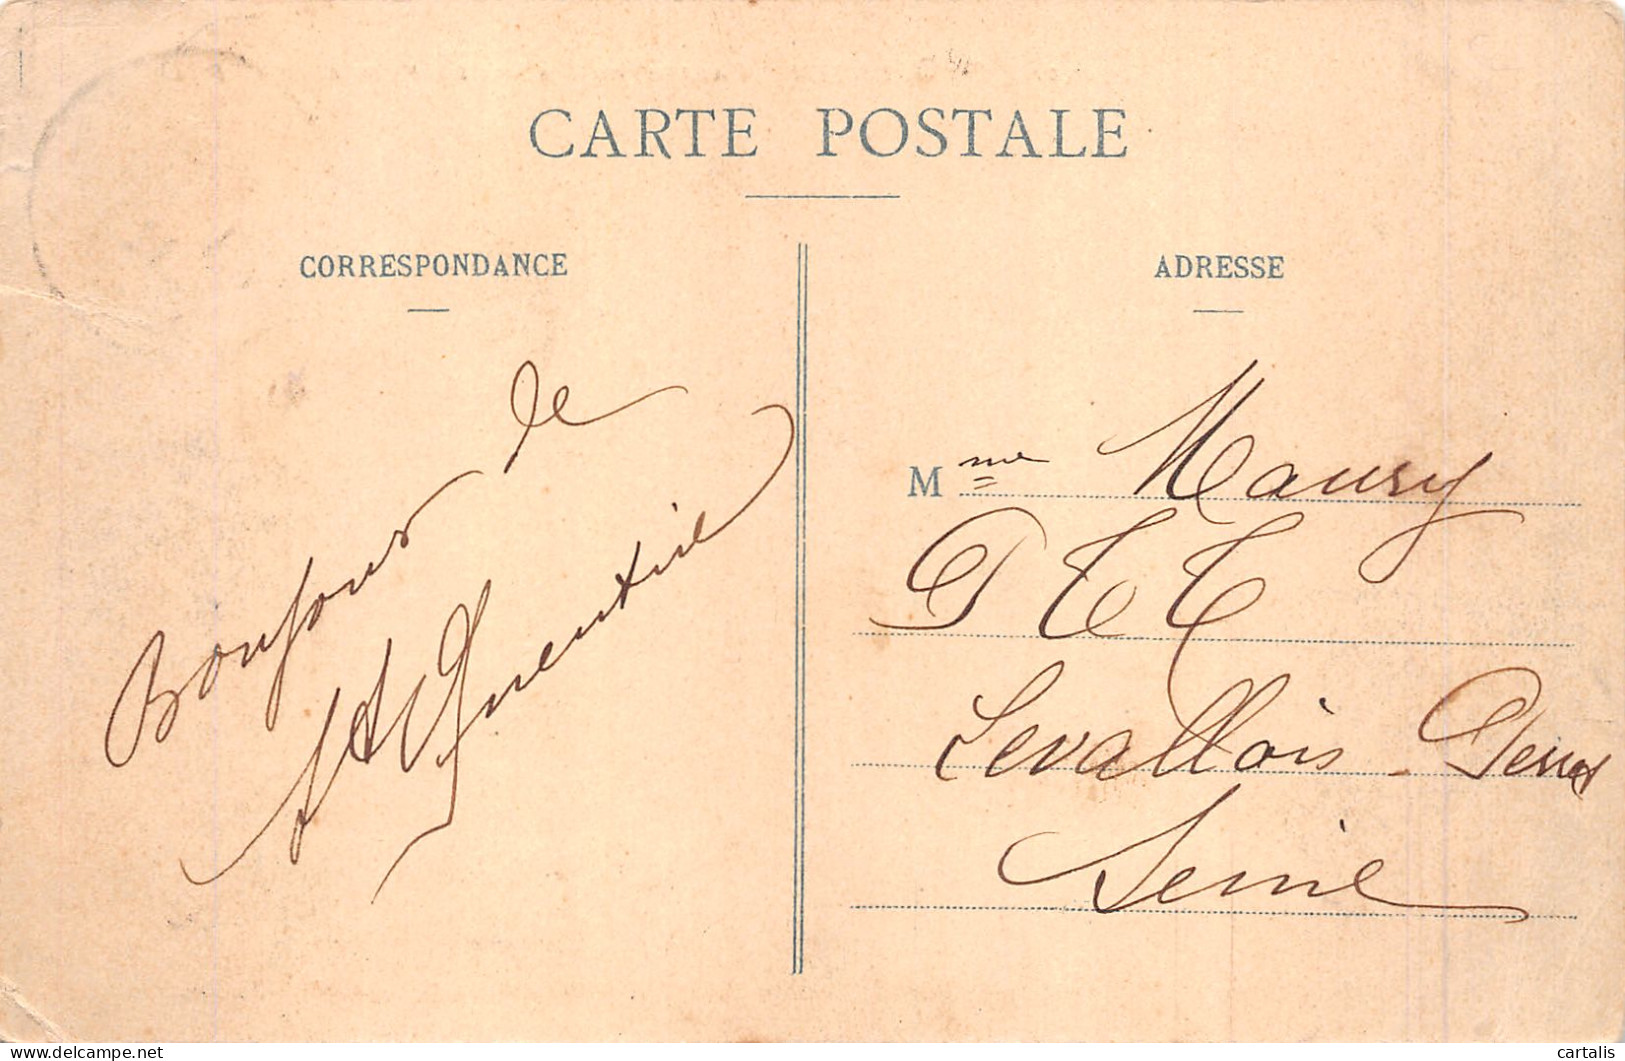 CARTE POSTALE
CORRESPONDANCE
Bonjour de
St Quentin
ADRESSE
Mme Maury
P T T
Levallois-Perret
Seine
cartalis